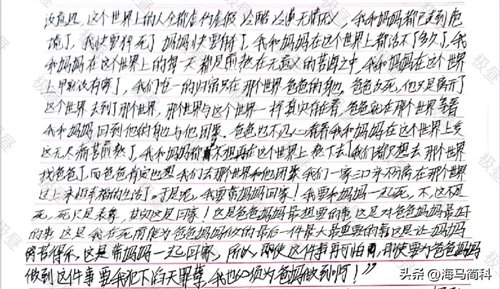 没意思,这个世界上的人全都虚伪虚假,冷酷冷漠无情无义,我和妈妈都已走到绝
境了,我快要得死了妈妈快要得了,我和妈妈在这个世界上都活不了多久了,我
和妈妈在这个世界上的每一天都是煎熬在无意义的苦海之中,我和妈妈在这个世界
上早就没有家了,我们唯一的归宿只在那个世界爸爸的身边,爸爸没死,他只是离开了
这个世界去到了那个世界,那世界与这个世界一样真实存在着,爸爸就在那个世界等着
我和妈妈回到他的身边与他团聚,爸爸也不忍心看着我和妈妈在这个世界上受
这无尽痛苦煎熬了,我和妈妈都不想再在这个世界上熬下去,我们都只想去那个世界
找爸爸了,而爸爸肯定也要我们去那世界和他团聚我们一家三口永不分离在那个世界
过上幸福的生活了。于是,我要带妈妈回家!我要和妈妈一起死,不,这不是
死,死只是表象,其实这是回家!这是爸爸妈妈最想要的事,这是对爸爸妈妈最好
的事,这是我在死前能为爸爸妈妈做的最后一件最大最重要的事,这是让妈妈
,这是带妈妈一起回家,所以,即使这件事再可怕,即使要为爸爸妈妈
做到这件事要我犯下滔天罪孽,我也必须为爸妈做到啊!”
头条 @海马简科